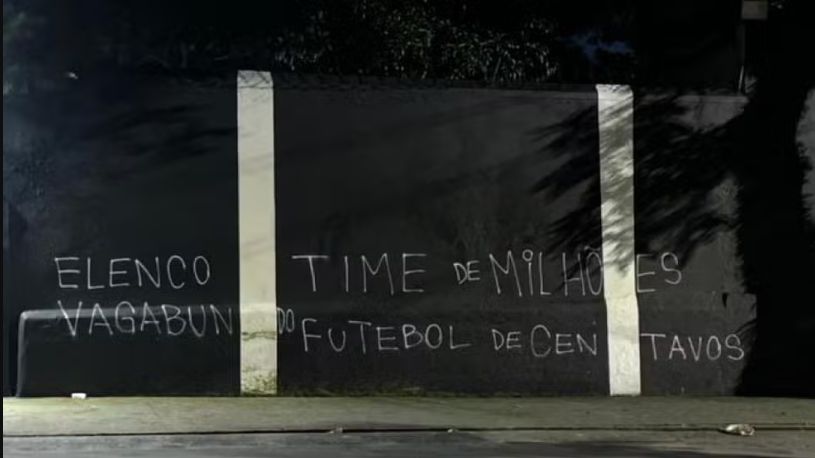 ELENCO
VAGABUNDO
TIME DE MILHÕES
FUTEBOL DE CENTAVOS